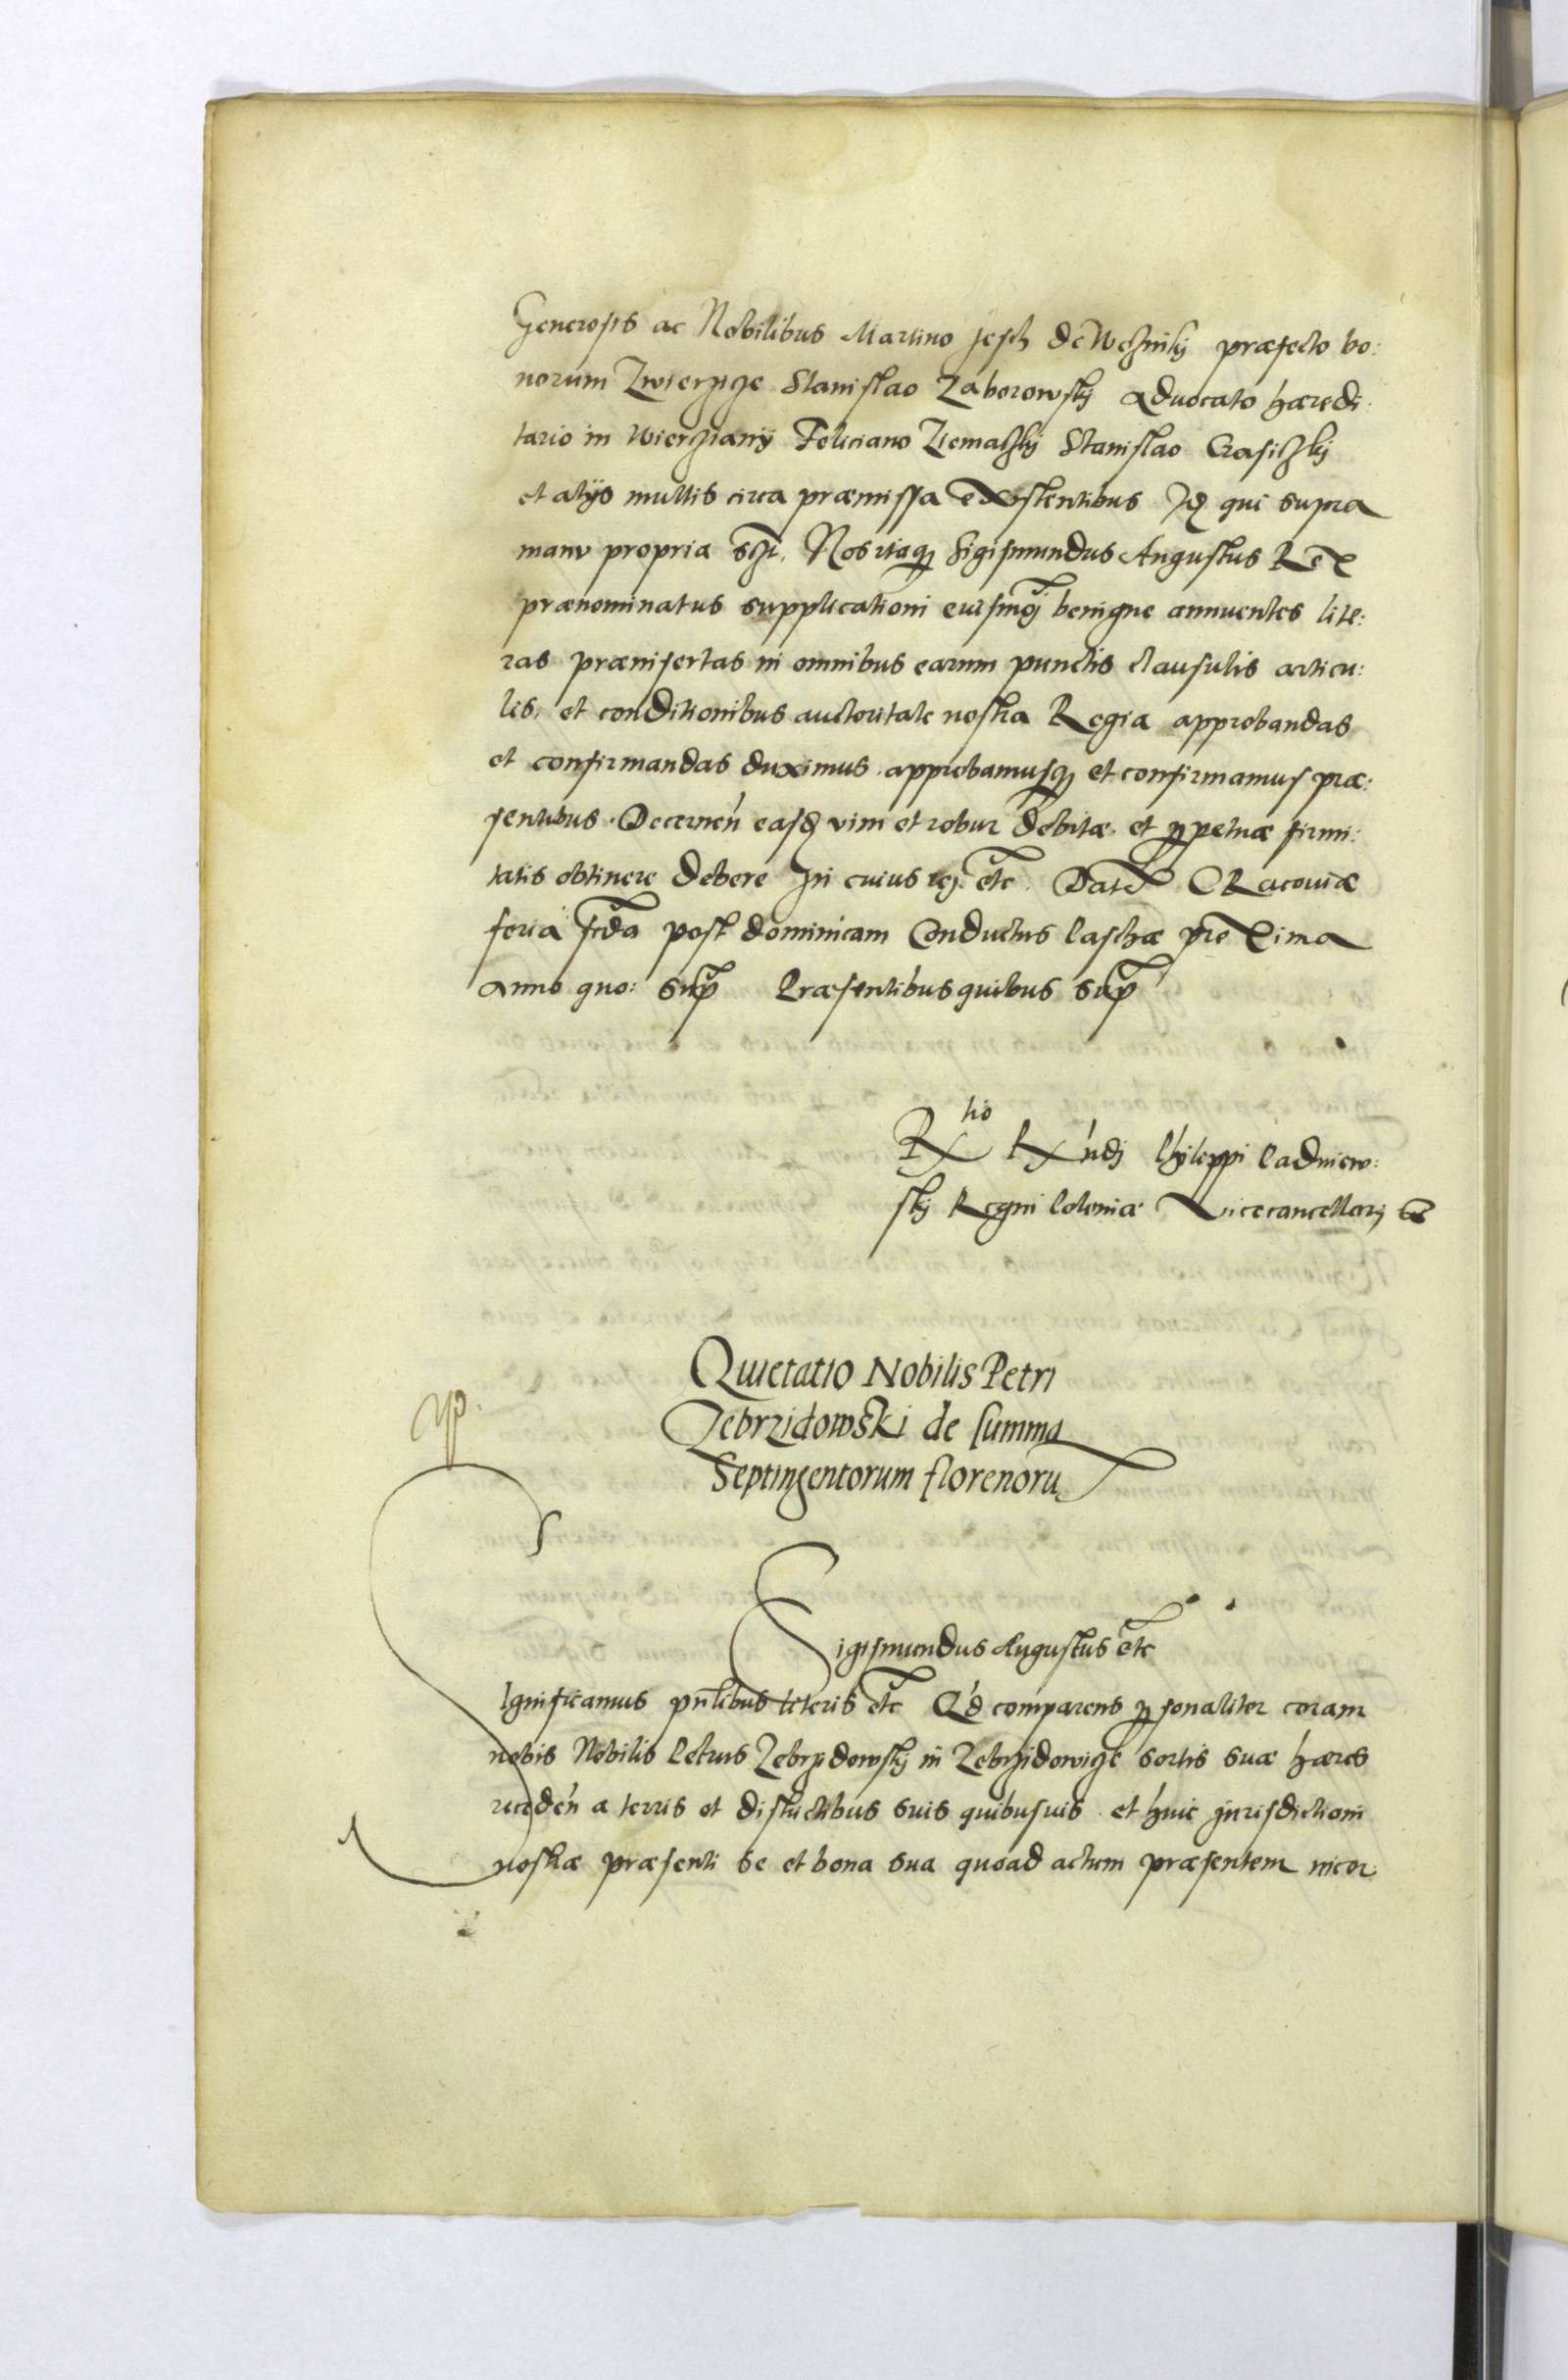 Generosis ac Nobilibus Martino Jesch de Wehniky præfecto bo:
norum Zwierziże Stanislao Zaborowskÿ advocato hæredi
tario in Wierzianÿ Feliciano Ziemaczkÿ Stanislao Crasiczkÿ
et alÿs multis circa præmissa existentibus Idq qui supra
manu propria sszt. Nos itaq Sigismundus Augustus Rex
prænominatus supplicationi euismoj benigne annuentes lite:
ras præinsertas in omnibus earum punctis clausulis articu:
lis, et conditionibus auctoritate nostra Regia approbandas
et confirmandas duximus. approbamusq et confirmamus præ:
sentibus. Decernen easd vim et robur debitæ et ppetuæ firmi:
tatis obtinere debere In cuius rej etc. Dat Cracoviæ
feria scda post dominicam Conductus Paschæ proxima
Anno quo: sup Præsentibus quibus sup
Rtio Rndj Philippi Padniew:
skÿ Regni Poloniæ Vicecancellarÿ etc
Quietatio Nobilis Petri
Zebrzidowski de summa
Septingentorum florenoru
Sigismundus Augustus etc
Ignificamus pntibus literis etc Qd comparens psonaliter coram
nobis Nobilis Petrus Zebrzidowskÿ in Zebrzidowicze sortis suæ hæres
receden a terris et districtibus suis quibusuis et huic jurisdictioni
nostræ præsenti se et bona sua quoad actum præsentem incor